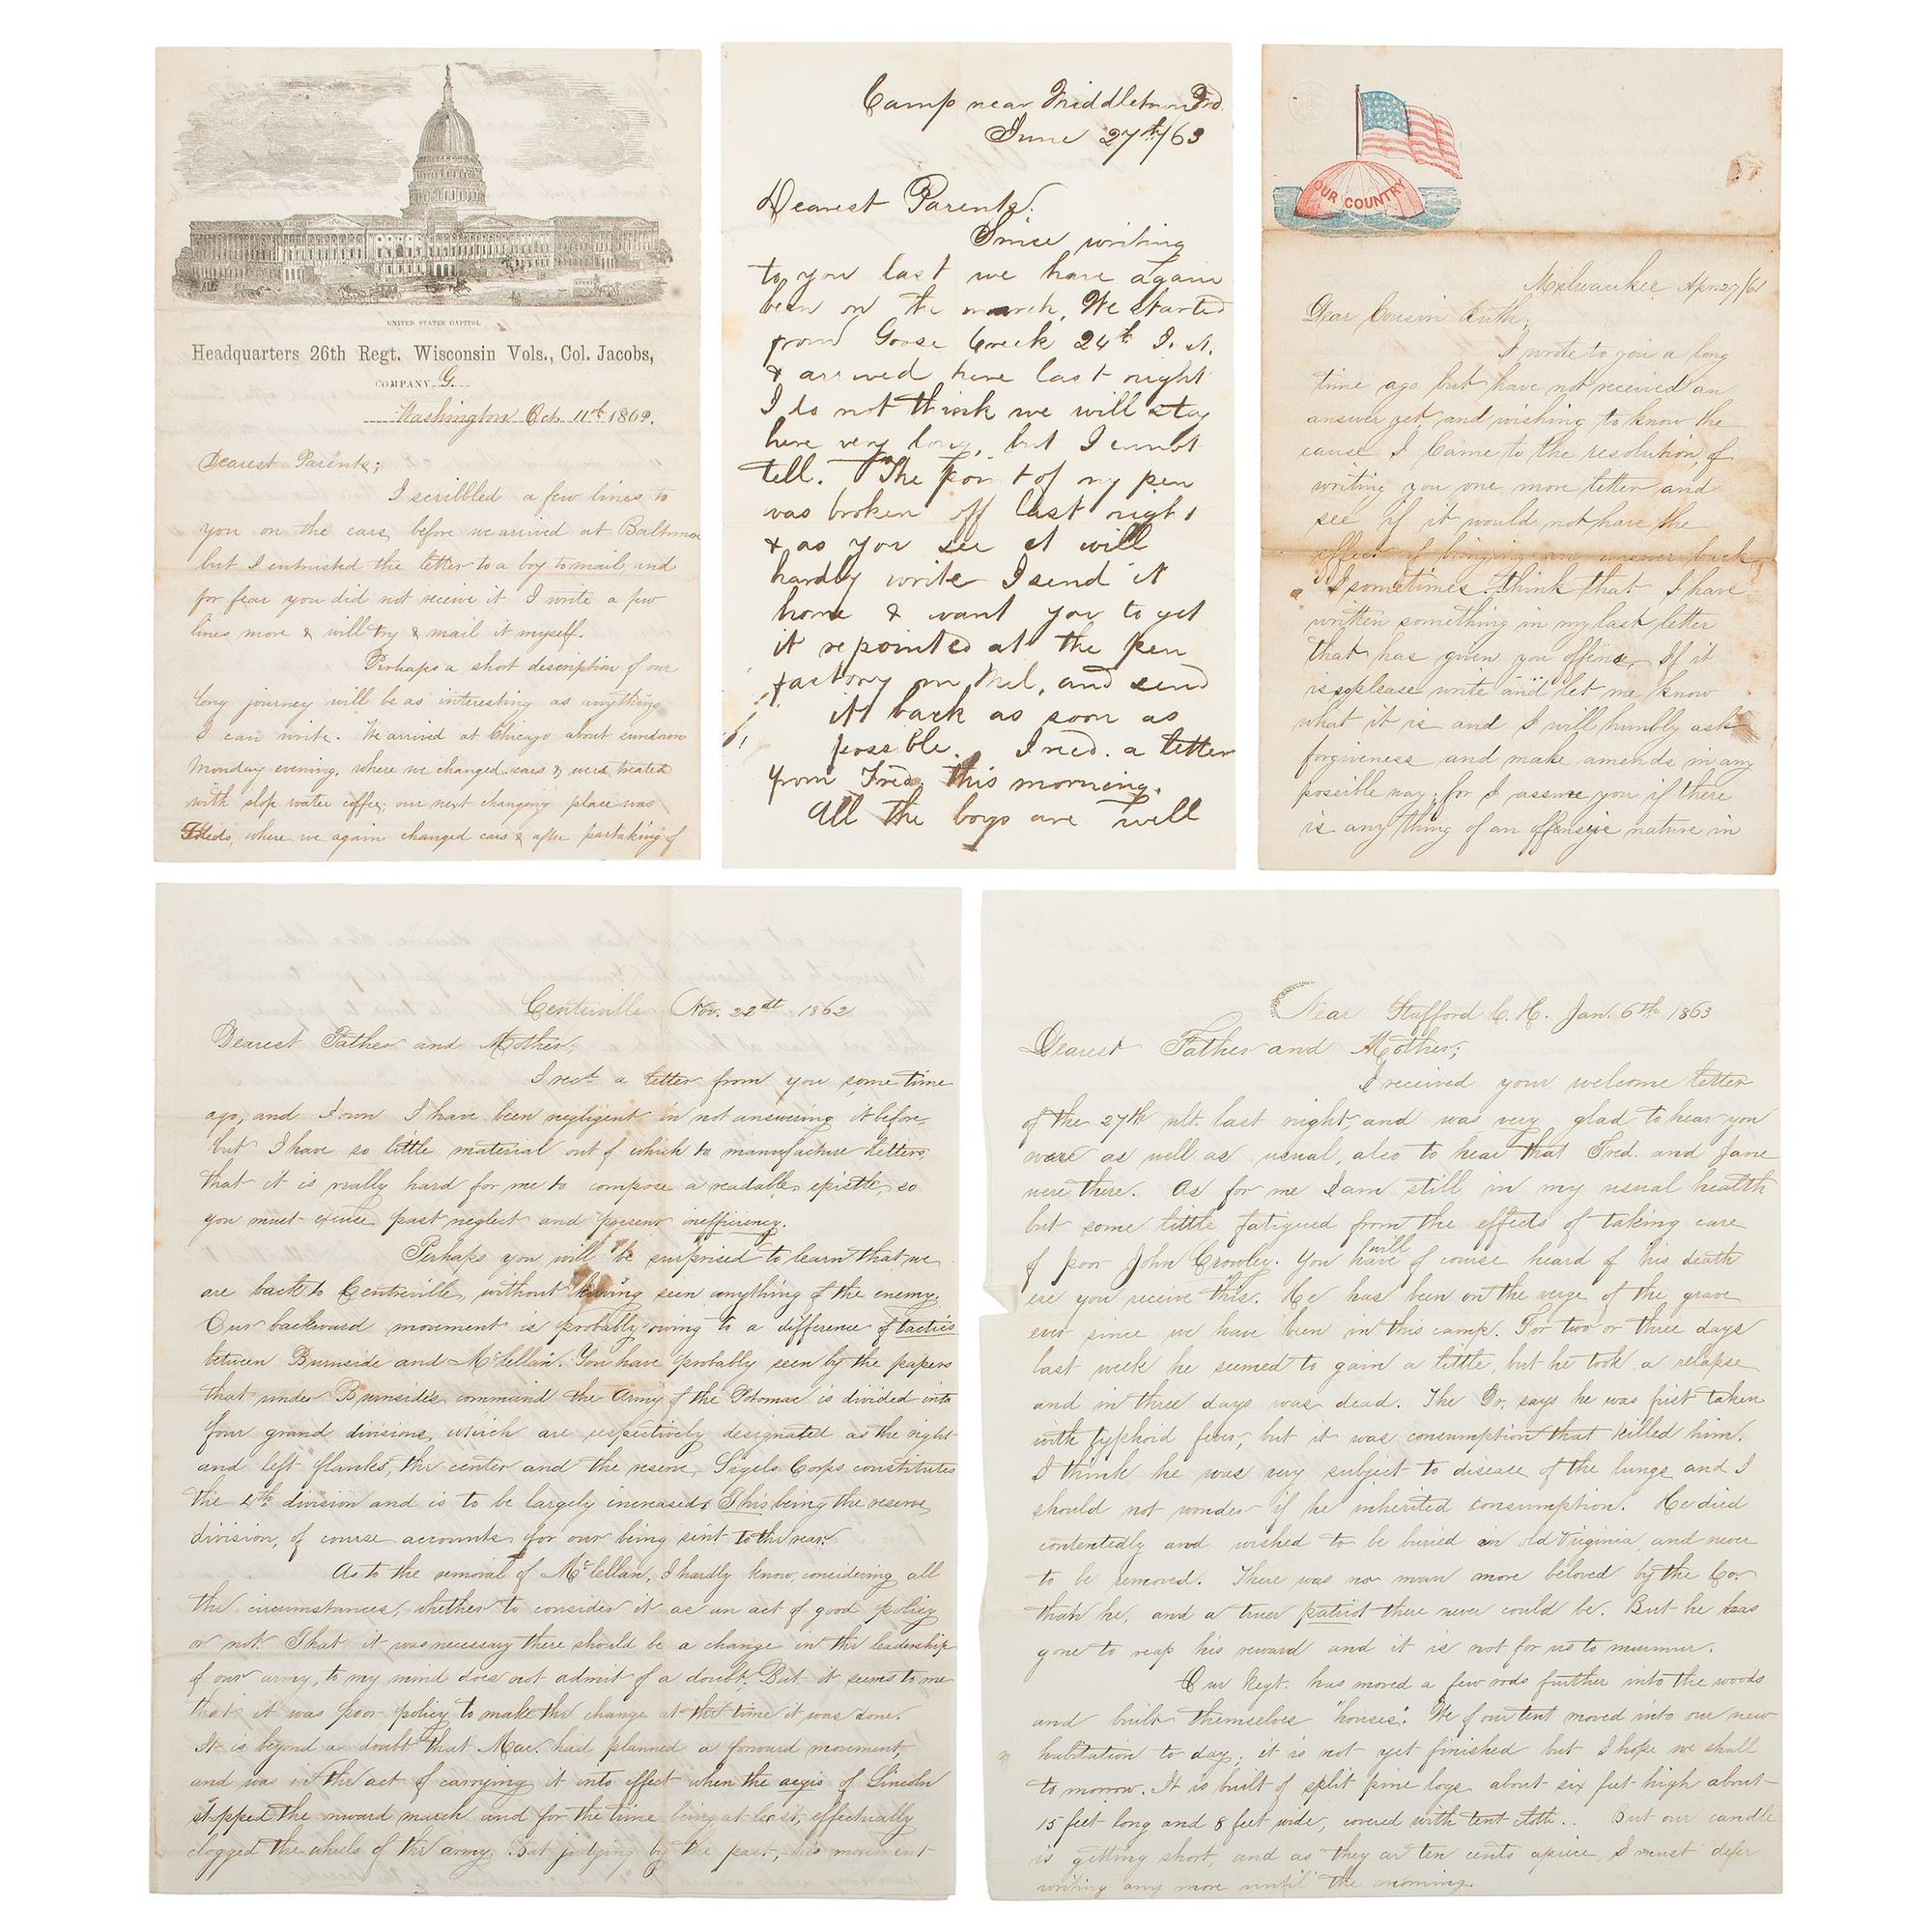 UNITED STATES CAPITOL
Headquarters 26th Regt. Wisconsin Vols., Col. Jacobs,
COMPANY G.
Washington Oct. 11th 1862.
Dearest Parents;
I scribbled a few lines to
you on the cars, before we arrived at Baltimore
but I entrusted the letter to a boy to mail, and
for fear you did not receive it I write a few
lines more & will try & mail it myself.
Perhaps a short description of our
long journey will be as interesting as anything
I can write. We arrived at Chicago about sundown
Monday evening, where we changed cars & were treated
with slop water coffee; our next changing place was
Toledo, where we again changed cars & after partaking of
Camp near Middletown Md.
June 27th/63
Dearest Parents.
Since writing
to you last we have again
been on the march. We started
from Goose Creek 24th I. st.
& arrived here last night
I do not think we will stay
here very long, but I cannot
tell. The point of my pen
was broken off last night
& as you see it will
hardly write I send it
home & want you to get
it repointed at the pen
factory on Mil, and send
it back as soon as
possible. I recd. a letter
from Fred, this morning.
All the boys are well
OUR COUNTRY
Milwaukee Apr. 27/61
Dear Cousin Ruth;
I wrote to you a long
time ago but have not received an
answer yet, and wishing to know the
cause I came to the resolution, of
writing you one more letter, and
see if it would not have the
effect of bringing an answer back
I sometimes think that I have
written something in my last letter
that has given you offense, If it
is so please write and let me know
what it is and I will humbly ask
forgiveness and make amends in any
possible way; for I assure you if there
is any thing of an offensive nature in
Centreville Nov. 22dt 1862
Dearest Father and Mother;
I recd. a letter from you some time
ago, and I own I have been negligent in not answering it before,
but I have so little material out of which to manufacture letters,
that it is really hard for me to compose a readable epistle, so
you must excuse past neglect and present inefficiency.
Perhaps you will be surprised to learn that we
are back to Centreville, without having seen anything of the enemy.
Our backward movement is probably owing to a difference of tactics
between Burnside and McClellan. You have probably seen by the papers
that under Burnside's command the Army of the Potomac is divided into
four grand divisions, which are respectively designated as the right
and left flanks, the center and the reserve, Sigels Corps constitutes
the 4th division and is to be largely increased. This being the reserve
division, of course accounts for our being sent to the rear.
As to the removal of McClellan, I hardly know, considering all
the circumstances, whether to consider it as an act of good policy
or not. That it was necessary there should be a change in the leadership
of our army, to my mind does not admit of a doubt. But it seems to me
that it was poor policy to make the change at the time it was done.
It is beyond a doubt that Mac. had planned a forward movement,
and was in the act of carrying it into effect when the aegis of Lincoln
stopped the onward march and for the time being at least, effectually
clogged the wheels of the army. But judging by the past, his movement
Near Stafford C. H. Jan. 6th 1863
Dearest Father and Mother;
I received your welcome letter
of the 27th ult. last night, and was very glad to hear you
were as well as usual, also to hear that Fred. and Jane
were there. As for me I am still in my usual health
but some little fatigued from the effects of taking care
of poor John Crowley. You will have of course heard of his death
ere you receive this. He has been on the verge of the grave
ever since we have been in this camp. For two or three days
last week he seemed to gain a little, but he took a relapse
and in three days was dead. The Dr. says he was first taken
with typhoid fever, but it was consumption that killed him.
I think he was very subject to disease of the lungs and I
should not wonder if he inherited consumption. He died
contentedly and wished to be buried in old Virginia, and never
to be removed. There was no man more beloved by the Co.
than he, and a truer patriot there never could be. But he has
gone to reap his reward and it is not for us to murmur.
Our Regt. has moved a few rods further into the woods
and built themselves "houses". We of our tent moved into our new
habitation to day; it is not yet finished but I hope we shall
to morrow. It is built of split pine logs about six feet high about
15 feet long and 8 feet wide, covered with tent cloth.. But our candle
is getting short, and as they are ten cents apiece, I must defer
writing any more until the morning.